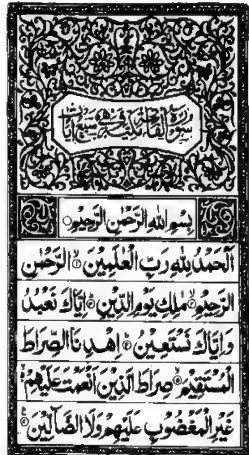 سورة الفاتحة مكية وهي سبع آيات
بِسْمِ اللهِ الرَّحْمٰنِ الرَّحِيْمِ
اَلْحَمْدُ لِلّٰهِ رَبِّ الْعٰلَمِيْنَ ۙ﴿۱﴾ الرَّحْمٰنِ
الرَّحِيْمِ ۙ﴿۲﴾ مٰلِكِ يَوْمِ الدِّيْنِ ؕ﴿۳﴾ اِيَّاكَ نَعْبُدُ
وَاِيَّاكَ نَسْتَعِيْنُ ؕ﴿۴﴾ اِهْدِنَا الصِّرَاطَ
الْمُسْتَقِيْمَ ۙ﴿۵﴾ صِرَاطَ الَّذِيْنَ اَنْعَمْتَ عَلَيْهِمْ ۙ﴿۶﴾
غَيْرِ الْمَغْضُوْبِ عَلَيْهِمْ وَلَا الضَّآلِّيْنَ ﴿۷﴾